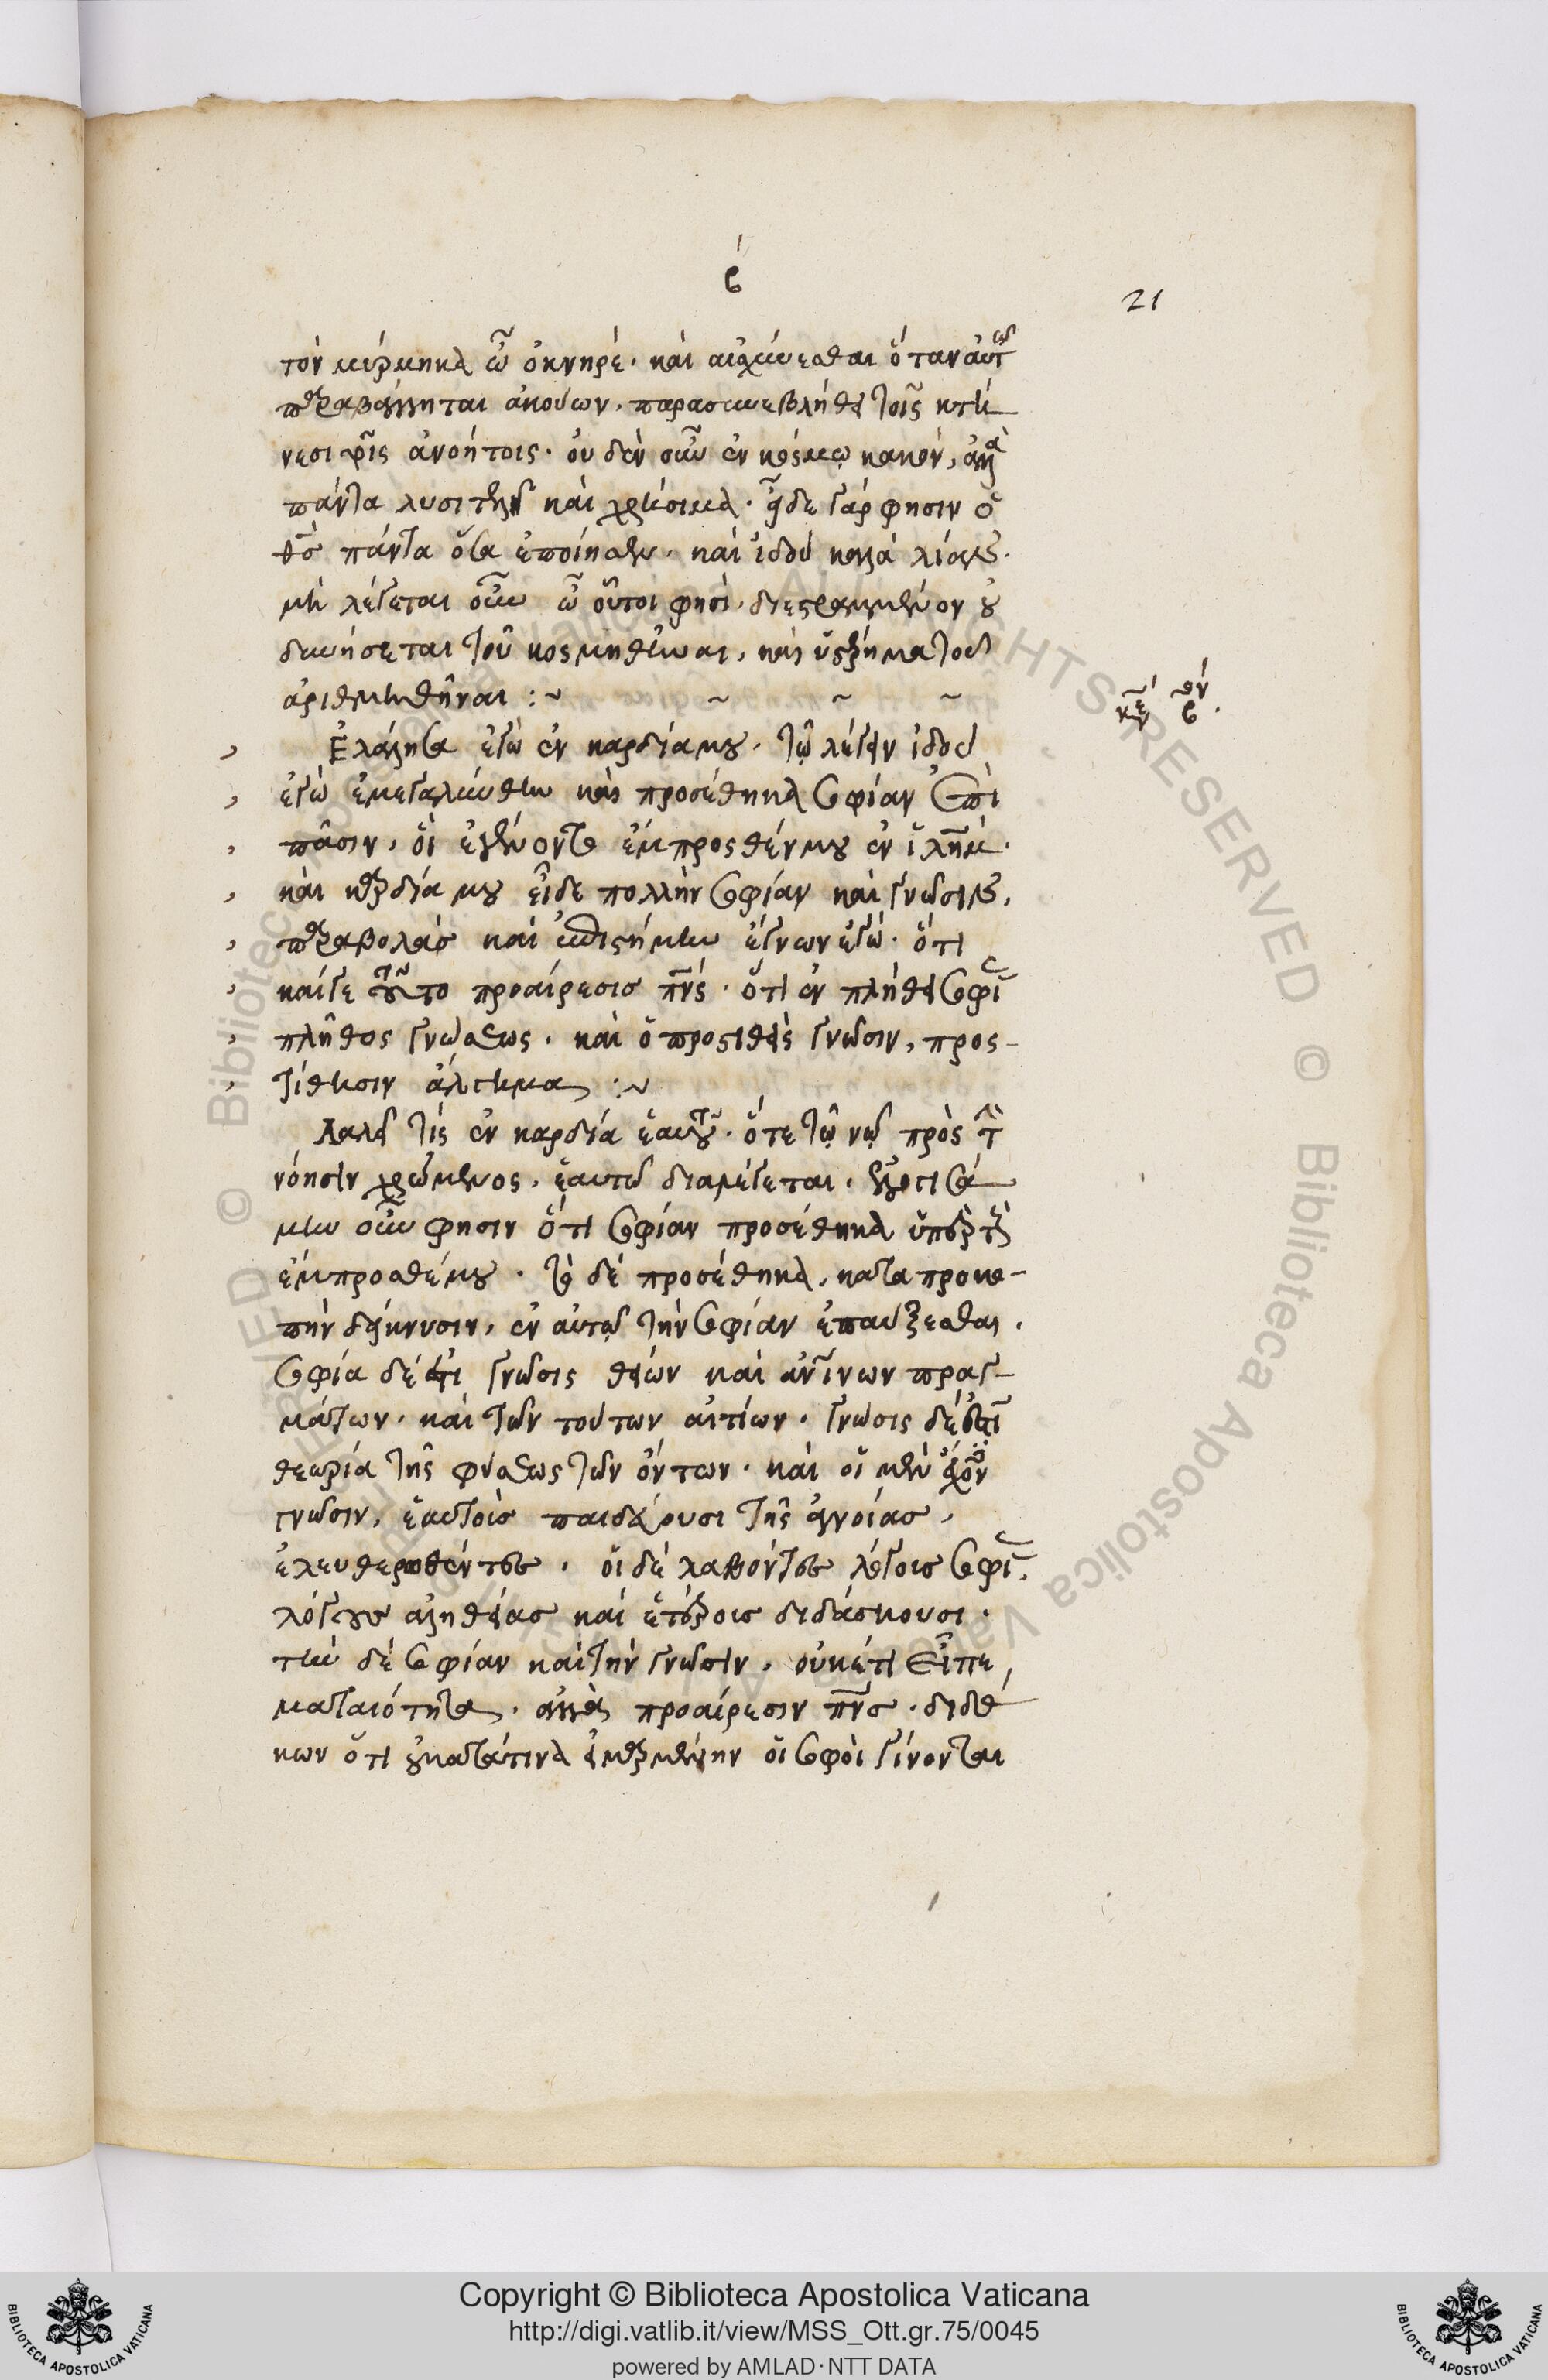 ϛ́
21
τὸν μύρμηκα ὦ ὀκνηρέ· καὶ αἰσχύνεσθαι ὅταν αὐτῷ
παραβάλληται ἀκούων, παρασυνεβλήθη τοῖς κτή
νεσι τοῖς ἀνοήτοις· οὐδὲν οὖν ἐν κόσμῳ κακὸν, ἀλλὰ
πάντα λυσιτελῆ καὶ χρήσιμα· γάρ φησιν ὁ
θσ πάντα ὅσα ἐποίησεν· καὶ ἰδοὺ καλὰ λίαν.
μὴ λέγεται οὖν ὦ οὗτοι φησὶ, διεστραμμένον οὐ
δυνήσεται τοῦ κοσμηθῆναι, καὶ ὑστέρημα τοῦ
ἀριθμηθῆναι :~ ~ ~ ~
κεί ον
ν ϛ.
Ἐλάλησα ἐγὼ ἐν καρδία μου, τῷ λέγειν ἰδοὺ
ἐγὼ ἐμεγαλύνθην καὶ προσέθηκα σοφίαν ἐπὶ
πᾶσιν, οἳ ἐγένοντο ἔμπροσθέν μου ἐν ἱλημ·
καὶ καρδία μου εἶδε πολλὴν σοφίαν καὶ γνῶσιν,
παραβολὰσ καὶ ἐπιστήμην ἔγνων ἐγώ· ὅτι
καίγε τοῦτο προαίρεσισ πνς· ὅτι ἐν πλήθει σοφί
πλῆθος γνώσεως· καὶ ὁ προστιθεὶς γνῶσιν, προς-
τίθησιν ἄλγημα :~
Λαλεῖ τίς ἐν καρδία ἑαυτοῦ· ὅτε τῷ νῷ πρὸς τὴν
νόησιν χρώμενος, ἑαυτῷ διαλέγεται·
μην οὖν φησιν ὅτι σοφίαν προσέθηκα ὑπὲρ τοὺς
ἔμπροσθέν μου· τὸ δὲ προσέθηκα, κατα προκο-
πὴν δείκνυσιν, ἐν αὐτῷ τὴν σοφίαν ἐπαύξεσθαι.
σοφία δέ ἐστι γνῶσις θείων καὶ ἀνίνων πραγ-
μάτων· καὶ τῶν τούτων αἰτίων· γνῶσις δέ ἐστι
θεωρία τῆς φύσεως τῶν ὄντων· καὶ οἱ μὲν
γνῶσιν, ἑαυτοὶσ παιδεύουσι τῆς ἀγνοίασ,
ἐλευθερωθέντεσ· οἱ δὲ λαβόντεσ λόγοισ σοφί,
λόγουσ ἀληθείασ καὶ ἑτέροισ διδάσκουσι·
τὴν δὲ σοφίαν καὶ τὴν γνῶσιν, οὐκέτι εἶπε
ματαιότητα, ἀλλὰ προαίρεσιν πνσ· διδά
κων ὅτι οὐ κατά τινα εἱμαρμένην οἱ σοφοὶ γίνονται
Copyright © Biblioteca Apostolica Vaticana
http://digi.vatlib.it/view/MSS_Ott.gr.75/0045
powered by AMLAD·NTT DATA